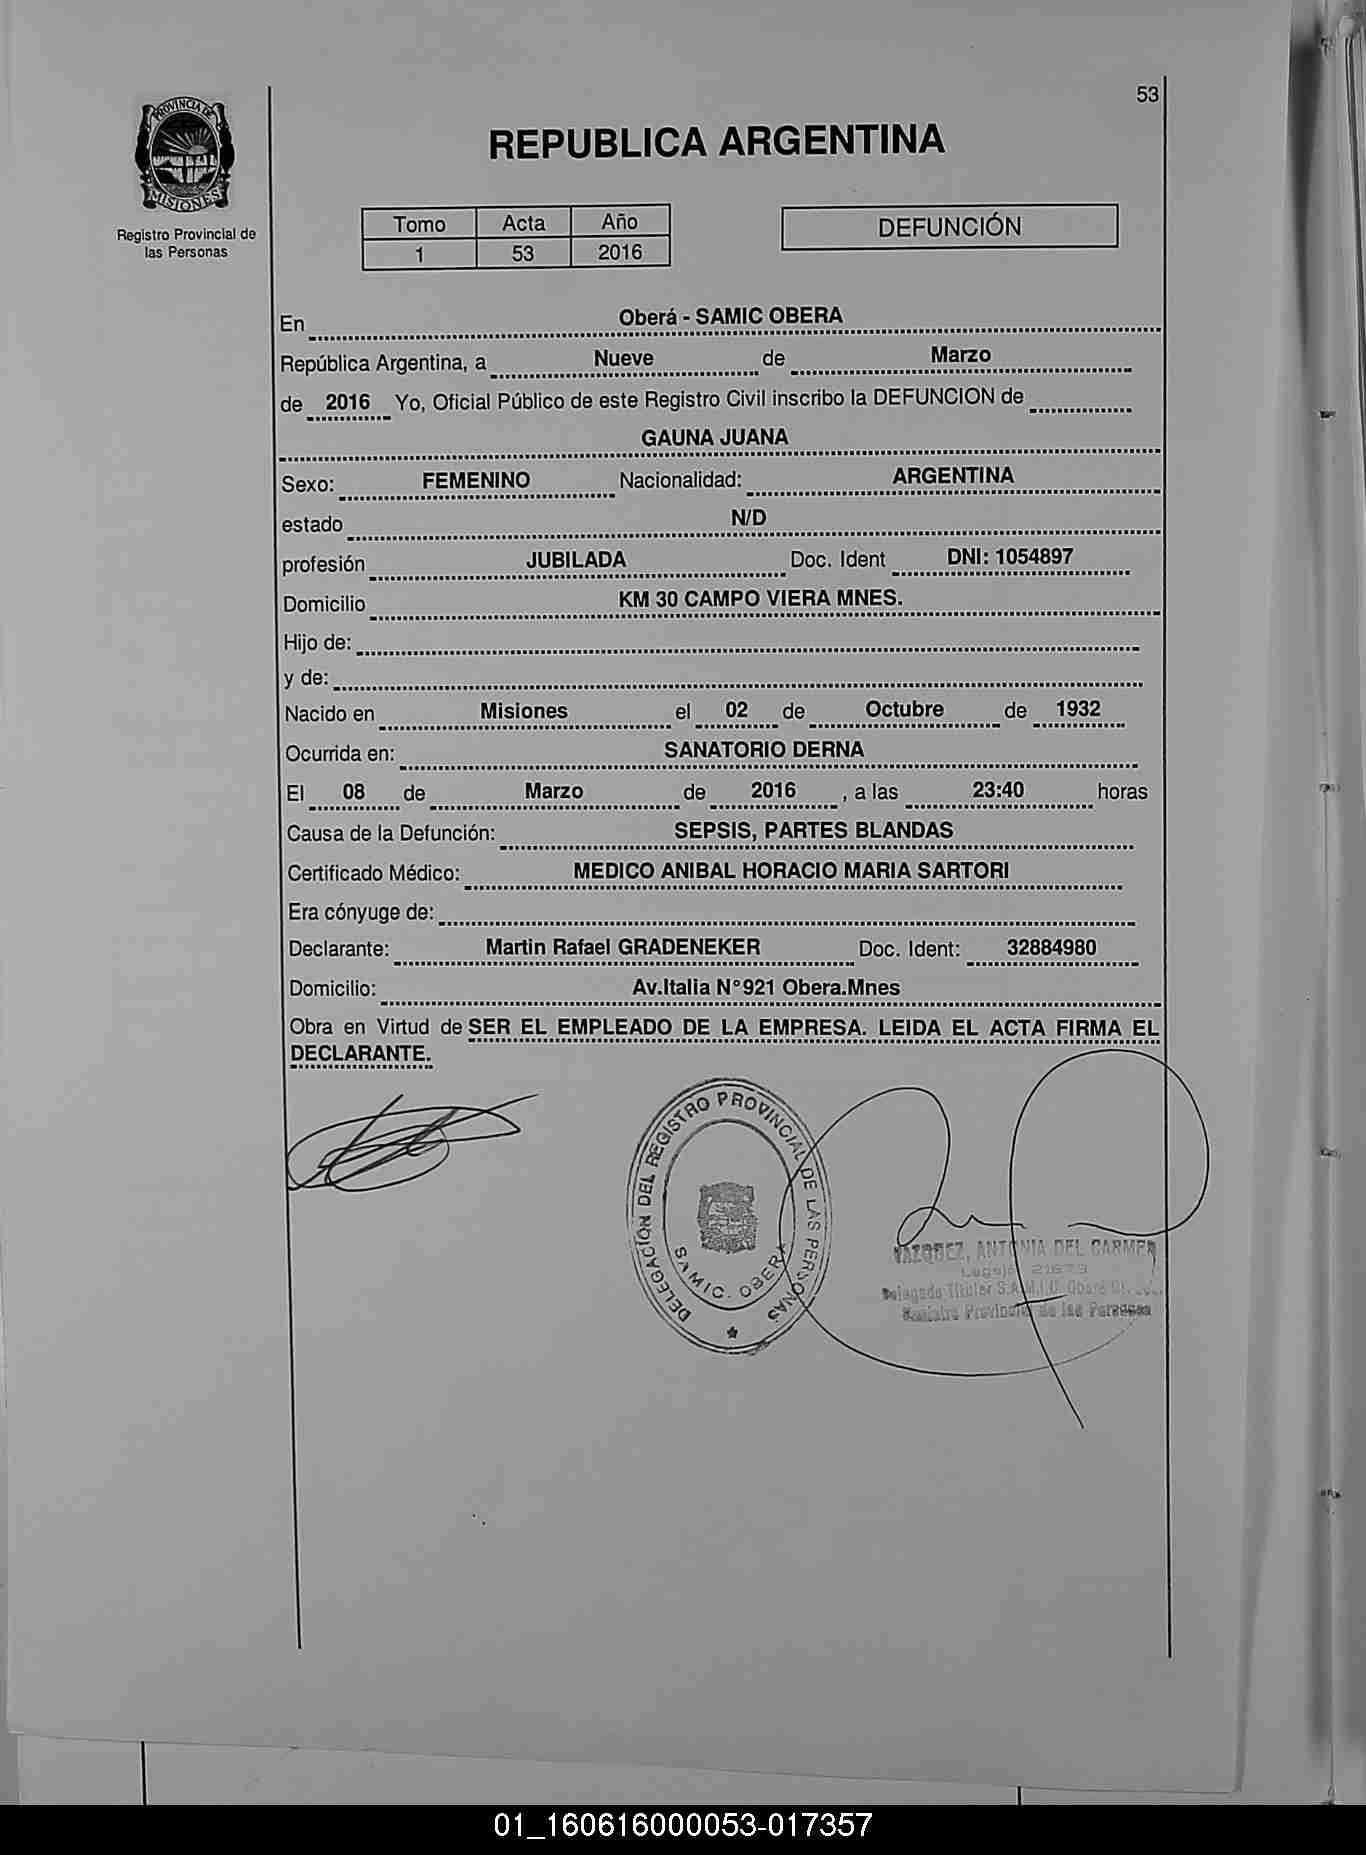 53
PROVINCIA DE
MISIONES
Registro Provincial de
las Personas
REPUBLICA ARGENTINA
Tomo Acta Año
1 53 2016
DEFUNCIÓN
En Oberá - SAMIC OBERA
República Argentina, a Nueve de Marzo
de 2016 Yo, Oficial Público de este Registro Civil inscribo la DEFUNCION de
GAUNA JUANA
Sexo: FEMENINO Nacionalidad: ARGENTINA
estado N/D
profesión JUBILADA Doc. Ident DNI: 1054897
Domicilio KM 30 CAMPO VIERA MNES.
Hijo de:
y de:
Nacido en Misiones el 02 de Octubre de 1932
Ocurrida en: SANATORIO DERNA
El 08 de Marzo de 2016 , a las 23:40 horas
Causa de la Defunción: SEPSIS, PARTES BLANDAS
Certificado Médico: MEDICO ANIBAL HORACIO MARIA SARTORI
Era cónyuge de:
Declarante: Martin Rafael GRADENEKER Doc. Ident: 32884980
Domicilio: Av.Italia N°921 Obera.Mnes
Obra en Virtud de SER EL EMPLEADO DE LA EMPRESA. LEIDA EL ACTA FIRMA EL
DECLARANTE.
DELEGACIÓN DEL REGISTRO PROVINCIAL DE LAS PERSONAS
SAMIC. OBERA
VAZQUEZ, ANTONIA DEL CARMEN
Legajo
Delegada Titular S.A.M.I.C. Oberá
Registro Provincial de las Personas
01_160616000053-017357